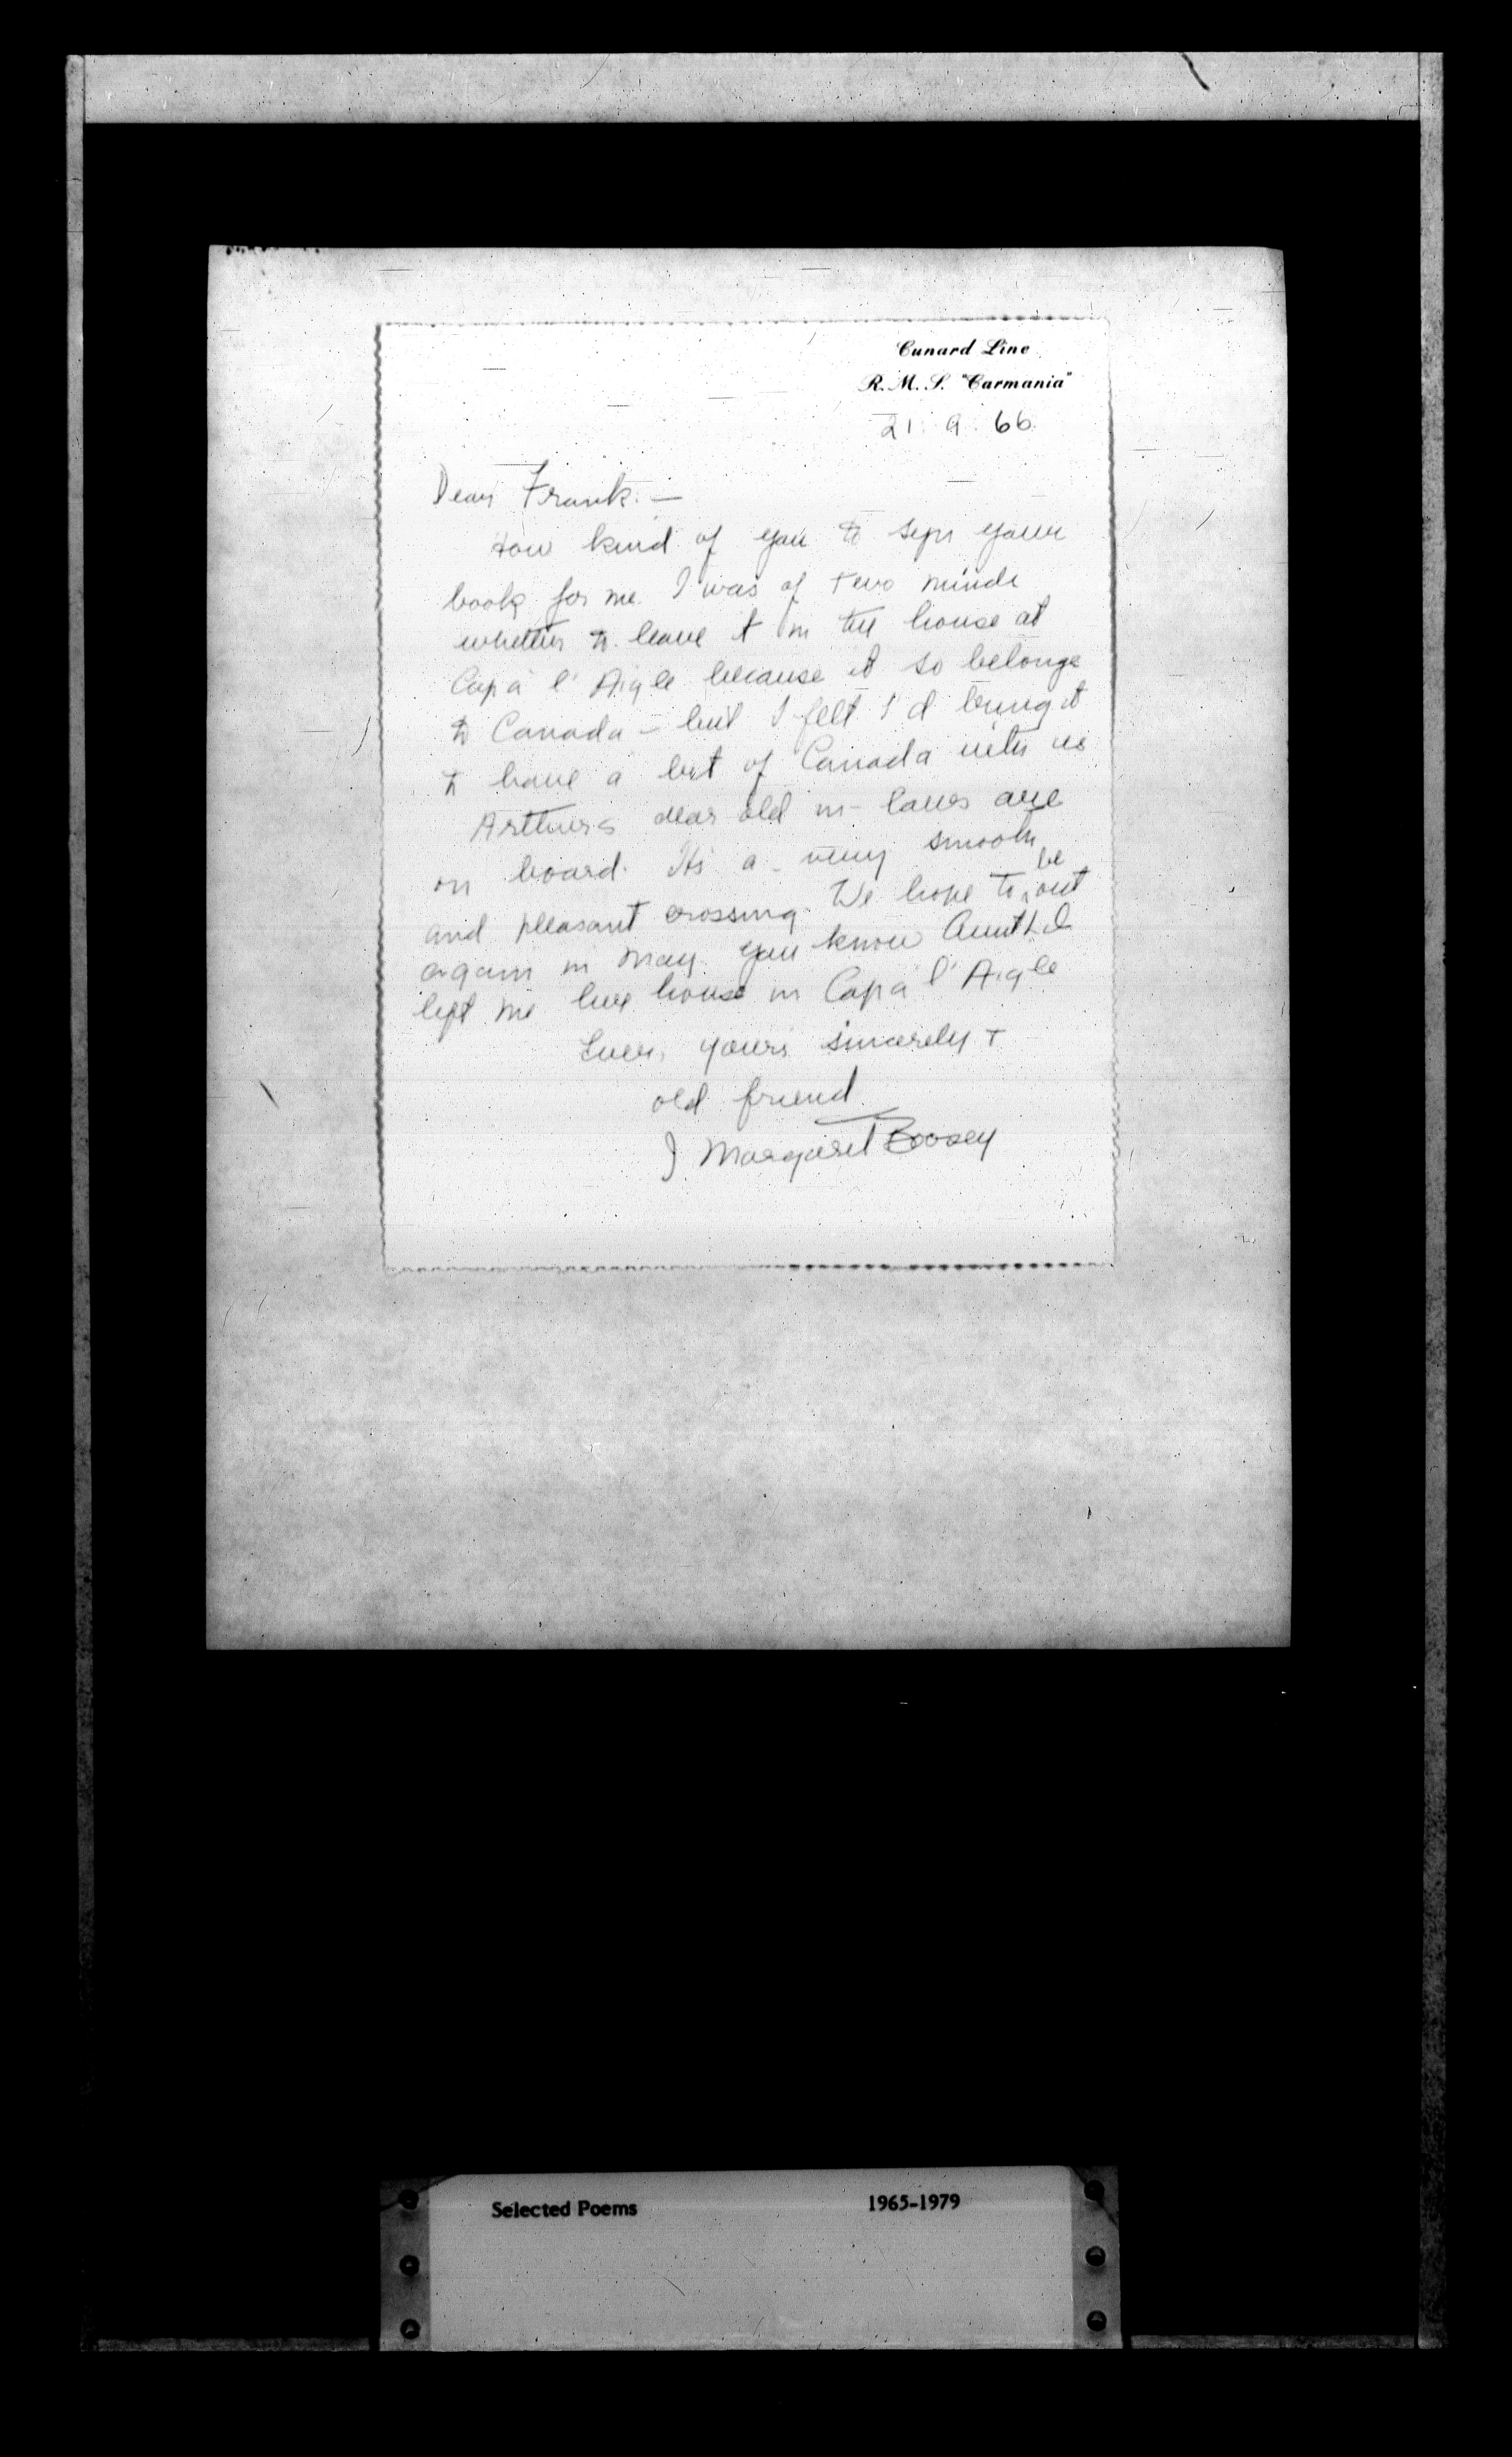 Cunard Line
R.M.S. "Carmania"
21. 9. 66.
Dear Frank. —
How kind of you to sign your
book for me. I was of two minds
whether to leave it in the house at
Cap à l'Aigle because it so belongs
to Canada – but I felt I'd bring it
to have a bit of Canada with us
Arthurs dear old in-laws are
on board. Its a very smooth
and pleasant crossing. We hope to be out
again in May. You know Aunt
left me her house in Cap à l'Aigle
Ever, yours sincerely +
old friend
J. Margaret Boosey
Selected Poems 1965-1979